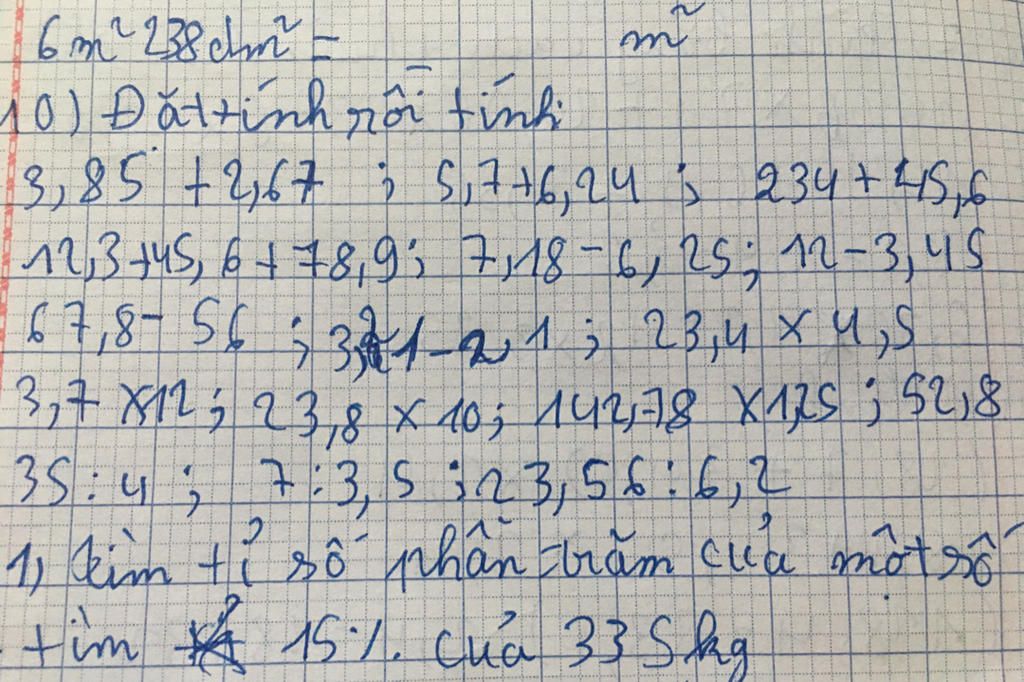 6m² 238dm² = m²
10) Đặt tính rồi tính
3,85 + 2,67 ; 5,7+6,24 ; 234 + 45,6
12,3+45,6+78,9; 7,18-6,25; 12-3,45
67,8- 56 ; 1-2,1 ; 23,4 x 4,5
3,7 x12; 23,8 x 10; 142,78 x1,25 ; 52,8
35:4 ; 7:3,5 ; 23,56:6,2
1) tìm tỉ số phần trăm của một số
tìm 15% của 335kg